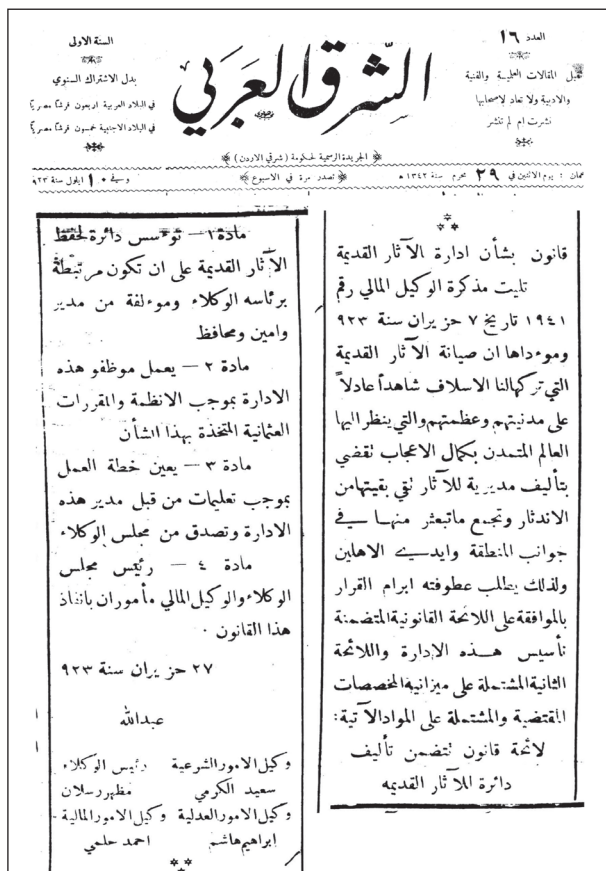 العدد ١٦
تقبل المقالات العلمية والفنية
والادبية ولا تعاد لاصحابها
نشرت ام لم تنشر
الشرق العربي
السنة الاولى
بدل الاشتراك السنوي
في البلاد العربية اربعون قرشا مصريا
في البلاد الاجنبية خمسون قرشا مصريا
الجريدة الرسمية لحكومة (شرقي الاردن)
عمان : يوم الاثنين في ٢٩ محرم سنة ١٣٤٢ هـ
تصدر مرة في الاسبوع
وفي ١٠ ايلول سنة ٩٢٣
قانون بشأن ادارة الآثار القديمة
تليت مذكرة الوكيل المالي رقم
١٩٤١ تاريخ ٧ حزيران سنة ٩٢٣
وموءداها ان صيانة الآثار القديمة
التي تركهالنا الاسلاف شاهداً عادلاً
على مدنيتهم وعظمتهم والتي ينظر اليها
العالم المتمدن بكمال الاعجاب تقضي
بتأليف مديرية للآثار تقي بقيتهامن
الاندثار وتجمع ماتبعثر منها في
جوانب المنطقة وايدي الاهلين
ولذلك يطلب عطوفته ابرام القرار
بالموافقة على اللائحة القانونية المتضمنة
تأسيس هذه الإدارة واللائحة
الثانية المشتملة على ميزانية المخصصات
المقتضية والمشتملة على المواد الآتية:
لائحة قانون تتضمن تأليف
دائرة للآثار القديمه
مادة ١ — توءسس دائرة لحفظ
الآثار القديمة على ان تكون مرتبطة
برئاسه الوكلاء وموءلفة من مدير
وامين ومحافظ
مادة ٢ — يعمل موظفو هذه
الادارة بموجب الانظمة والمقررات
العثمانية المتخذة بهذا الشأن
مادة ٣ — يعين خطة العمل
بموجب تعليمات من قبل مدير هذه
الادارة وتصدق من مجلس الوكلاء
مادة ٤ — رئيس مجلس
الوكلاء والوكيل المالي مأموران بانفاذ
هذا القانون .
٢٧ حزيران سنة ٩٢٣
عبدالله
وكيل الامور الشرعية رئيس الوكلاء
سعيد الكرمي مظهر رسلان
وكيل الامور العدلية وكيل الامور المالية
ابراهيم هاشم احمد حلمي